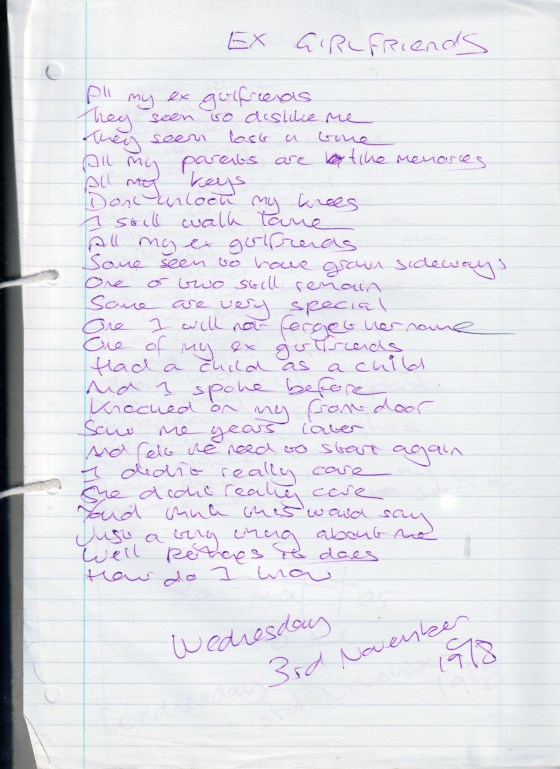 EX GIRLFRIENDS
All my ex girlfriends
They seen to dislike me
They seem lost in time
All my parents are like memories
All my keys
Dont unlock my knees
I still walk lame
All my ex girlfriends
Some seen to have grown sideways
One or two still remain
Some are very special
One I will not forget her name
One of my ex girlfriends
Had a child as a child
And I spoke before
Knocked on my front door
Saw me years later
And felt the need to start again
I didnt really care
She didnt really care
Youd think this would say
Just a tiny thing about me
Well Perhaps it does
How do I know
Wednesday
3rd November